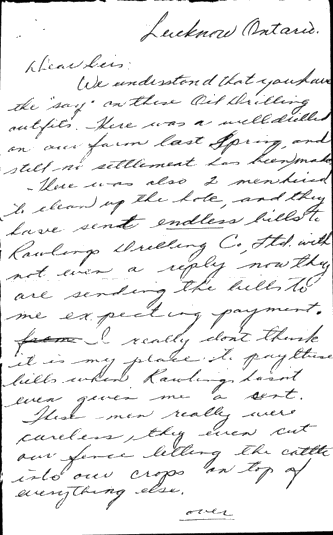 Lucknow Ontario.
Dear Sirs:
We understand that you have
the "say" on these Oil Drilling
outfits. There was a well drilled
on our farm last Spring, and
still no settlement has been made
There was also 2 men hired
to clean up the hole, and they
have sent endless bills to
Rawlings Drilling Co, Ltd. with
not even a reply now they
are sending the bills to
me expecting payment.
from I really dont think
it is my place to pay these
bills when Rawlings hasnt
even given me a cent.
These men really were
careless, they even cut
our fence letting the cattle
into our crops on top of
everything else.
over